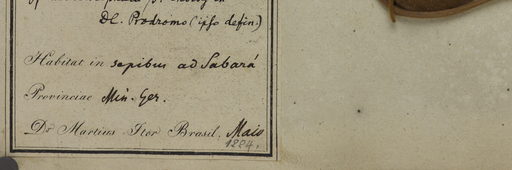 DC. Prodromo (ipso defin.)
Habitat in sepibus ad Sabará
Provinciae Min. Ger.
Dr Martius Iter Brasil. Maio
1284.